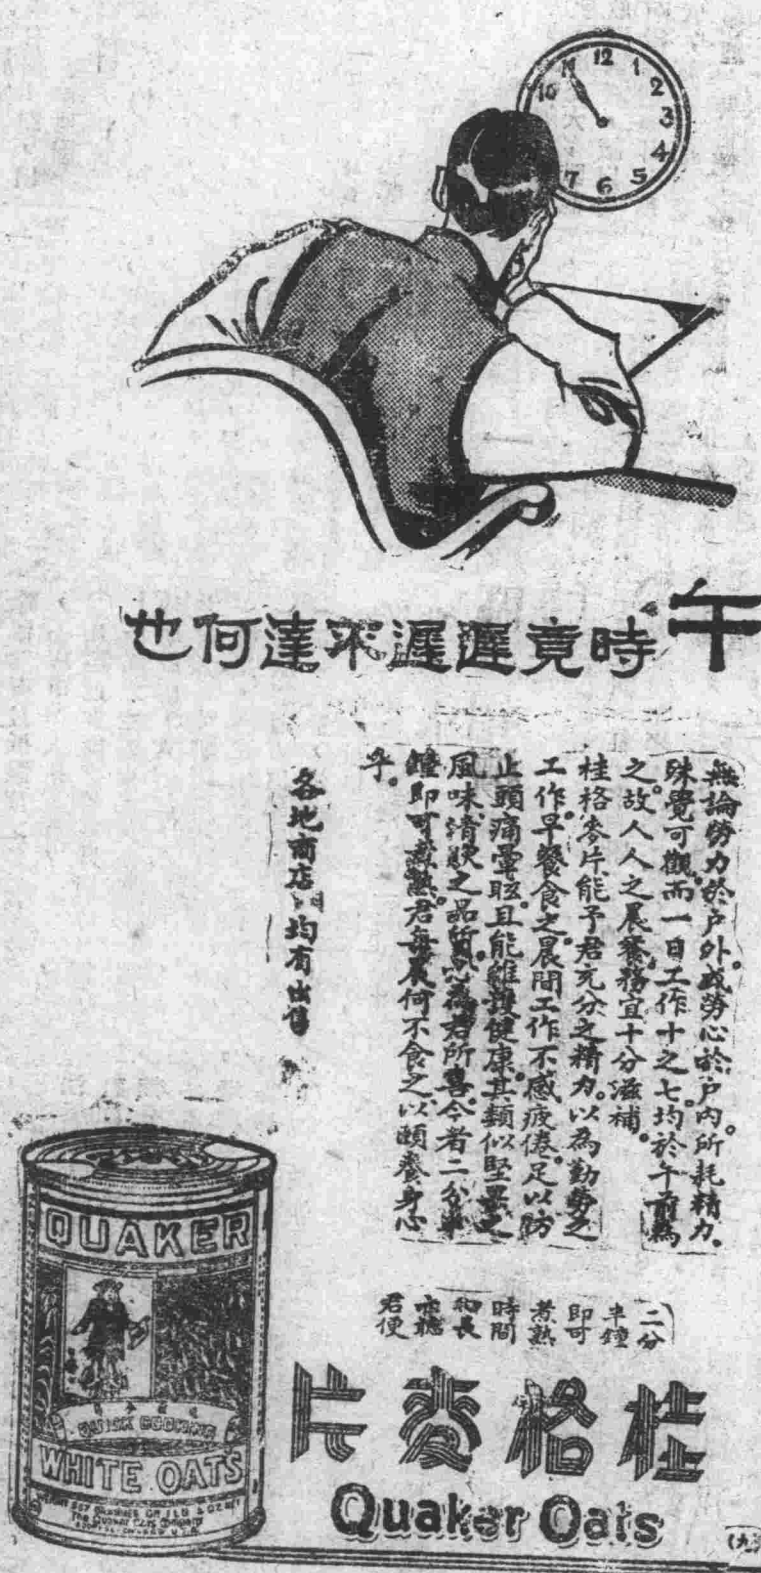 12
1
2
3
4
5
6
7
10
11
午時竟遲遲不達何也
無論勞力於戶外。或勞心於戶內。所耗精力。
殊覺可觀。而一日工作十之七。均於午前為
之。故人人之晨餐。務宜十分滋補。
桂格麥片能予君充分之精力。以為勤勞之
工作。早餐食之。晨間工作不感疲倦。足以防
止頭痛暈眩。且能維護健康。其類似堅果之
風味。清脆之品質。必為君所喜。今者二分半
鐘即可煮熟。君每晨何不食之以頤養身心
乎。
各地商店均有出售
二分
半鐘
即可
煮熟
時間
君便
桂格麥片
Quaker Oats
QUAKER
QUICK COOKING
WHITE OATS
The Quaker Oats Company
(九)